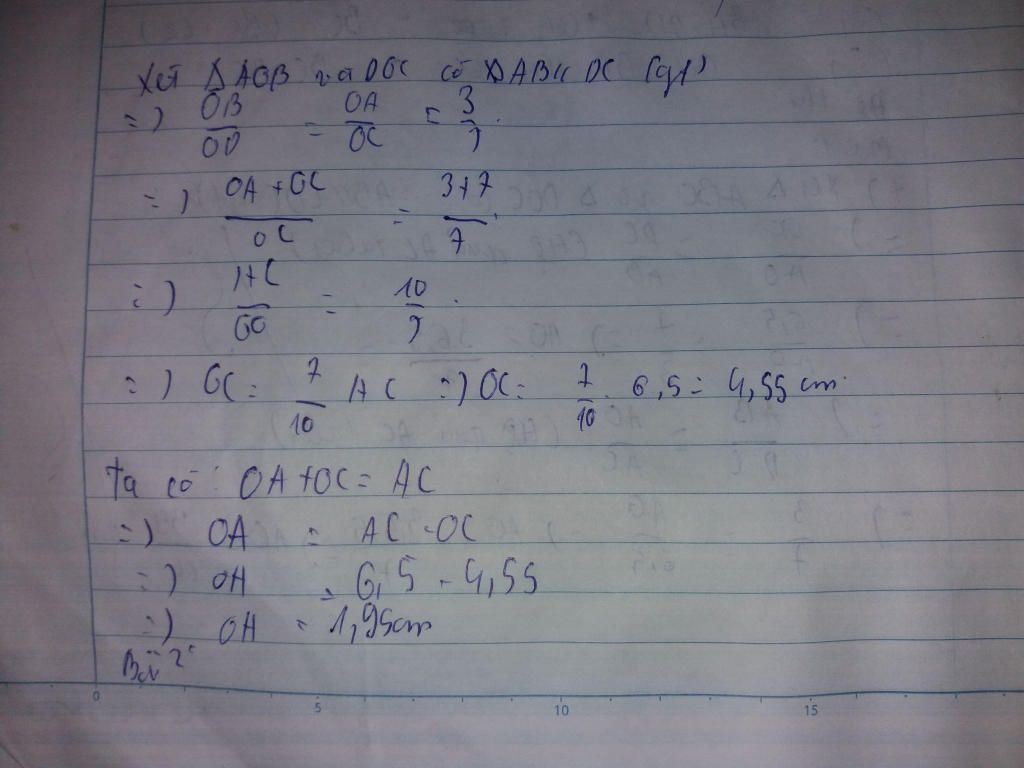 Xét ΔAOB và DOC có AB // DC (gt)
=) OB/OD = OA/OC = 3/7.
=) OA + OC/OC = 3+7/7.
=) AC/OC = 10/7.
=) OC = 7/10 AC =) OC = 7/10 . 6,5 = 4,55 cm.
Ta có: OA + OC = AC
=) OA = AC - OC
=) OA = 6,5 - 4,55
=) OA = 1,95cm
Bài 2:
0 5 10 15